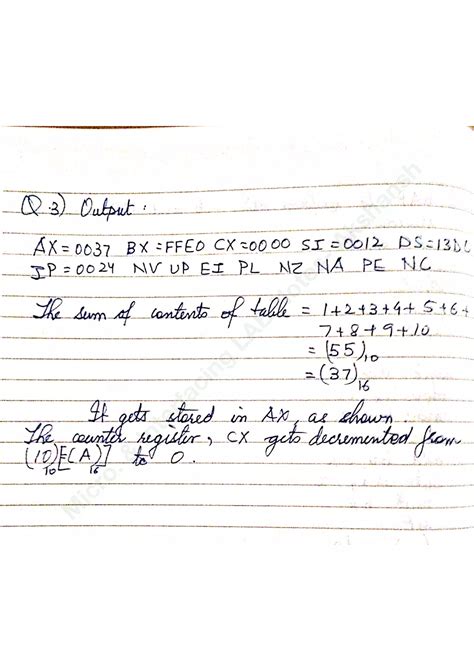 Q.3) Output :
AX = 0037 BX = FFE0 CX = 0000 SI = 0012 DS = 13DC
IP = 0024 NV UP EI PL NZ NA PE NC
The sum of contents of table = 1+2+3+4+5+6+
7+8+9+10
= (55)10
= (37)16
It gets stored in AX, as shown.
The counter register, CX gets decremented from
(10)10 [(A)16] to 0.